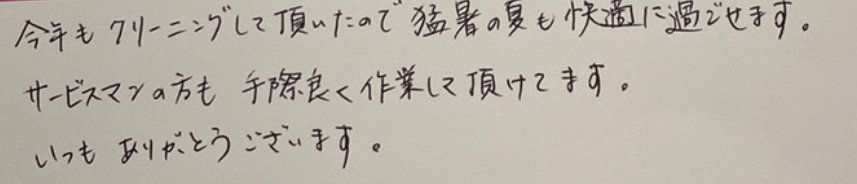 今年も クリーニングして頂いたので 猛暑の夏も 快適に過ごせます。
サービスマンの方も 手際良く作業して頂けてます。
いつも ありがとうございます。